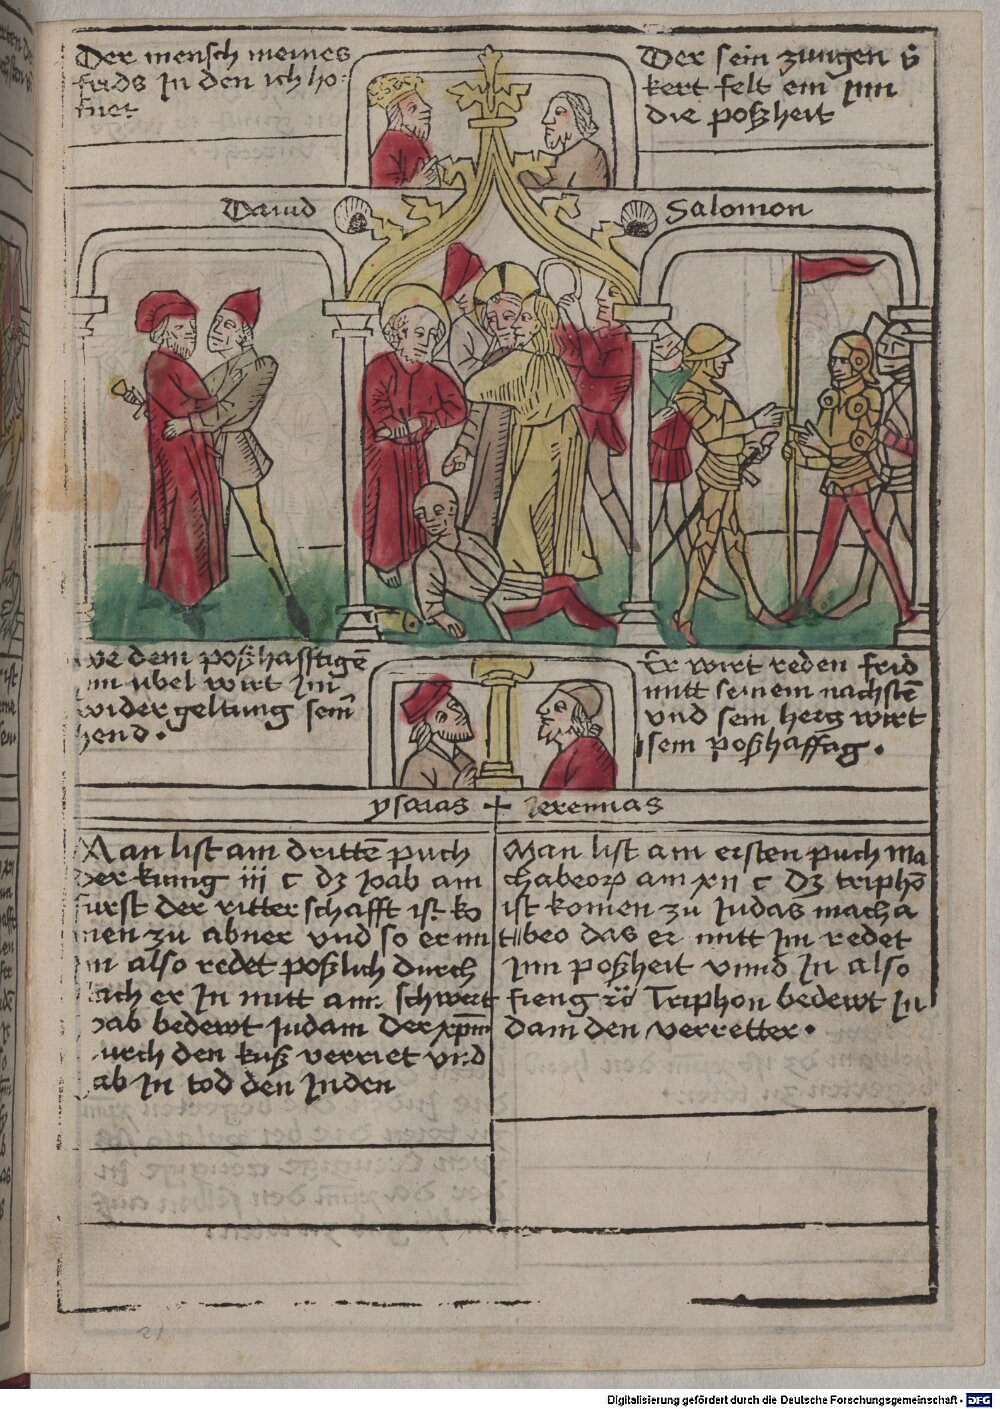 Der mensch meines
frids In den ich ho-
fnet
Der sein zungen v̂
kert felt ein Inn
die poßheit
Dauid
Salomon
we dem poßhafftigē
im ubel wirt Im
wider geltung seinr̄
hend.
Er wirt reden frid
mitt seinem nachstē
vnd sein herg wirt
sein poßhafftag.
ysaias + Jeremias
Man list am drittē puch
der kunig iii c dz Joab am
furst der ritterschafft ist ko
men zu abner vnd so er mit
im also redet poßlich durch
stach er In mitt aim schwert
Joab bedewt Judam der xpm̄
durch den kuß verriet vnd
gab In tod den Juden
Man list am ersten puch Ma
chabeorꝫ am xii c dz triphō
ist komen zu Judas macha
beo das er mitt Im redet
Inn poßheit vnnd In also
fieng Triphon bedewt Ju
dam den verretter.
21
Digitalisierung gefördert durch die Deutsche Forschungsgemeinschaft - DFG